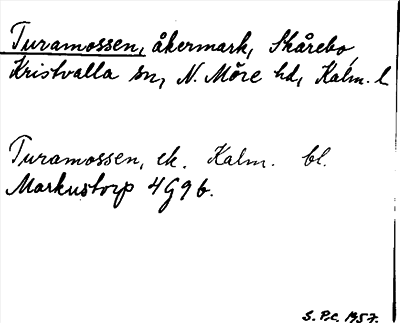 Turamossen, åkermark, Skårebo,
Kristvalla sn, N. Möre hd, Kalm. l
Turamossen, ek. Kalm. bl.
Markustorp 4G9b.
S. P:c. 1957.